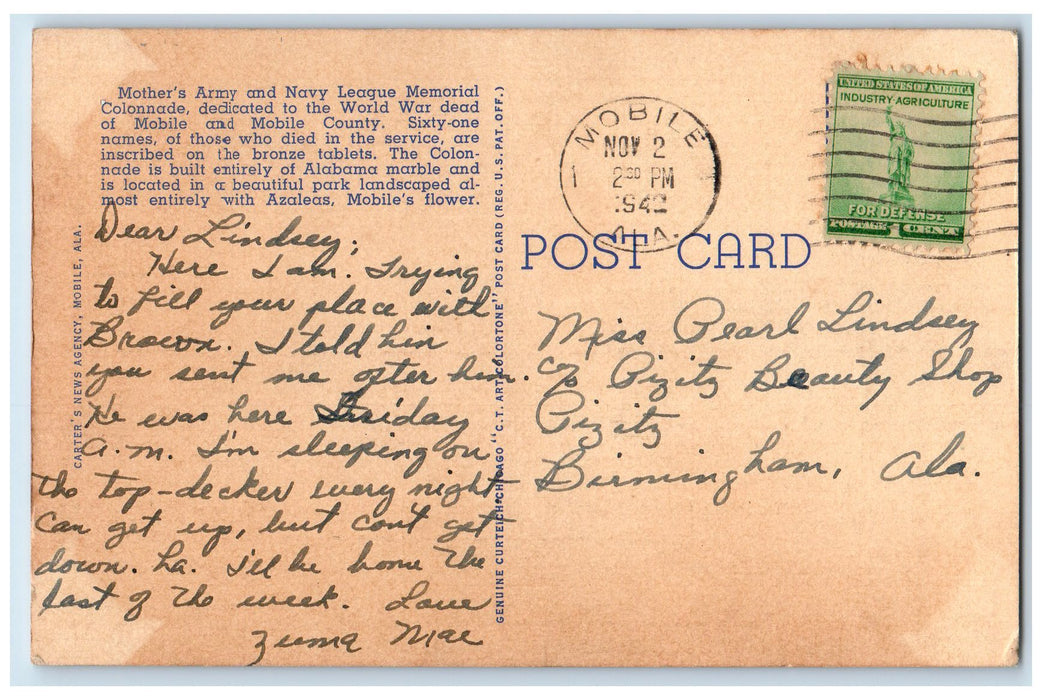 Mother's Army and Navy League Memorial
Colonnade, dedicated to the World War dead
of Mobile and Mobile County. Sixty-one
names, of those who died in the service, are
inscribed on the bronze tablets. The Colon-
nade is built entirely of Alabama marble and
is located in a beautiful park landscaped al-
most entirely with Azaleas, Mobile's flower.
CARTER'S NEWS AGENCY, MOBILE, ALA.
Dear Lindsey:
Here I am. Trying
to fill your place with
Brown. I told him
you sent me after him.
He was here Friday
a.m. I'm sleeping on
the top-decker every night.
Can get up, but can't get
down. Ha. I'll be home the
last of the week. Love
Zuma Mae
GENUINE CURTEICH-CHICAGO "C.T. ART-COLORTONE" POST CARD (REG. U.S. PAT. OFF.)
MOBILE
NOV 2
1
2 30 PM
1942
ALA.
UNITED STATES OF AMERICA
INDUSTRY-AGRICULTURE
FOR DEFENSE
POSTAGE 1 CENT
POST CARD
Miss Pearl Lindsey
c/o Pizitz Beauty Shop
Pizitz
Birmingham, Ala.